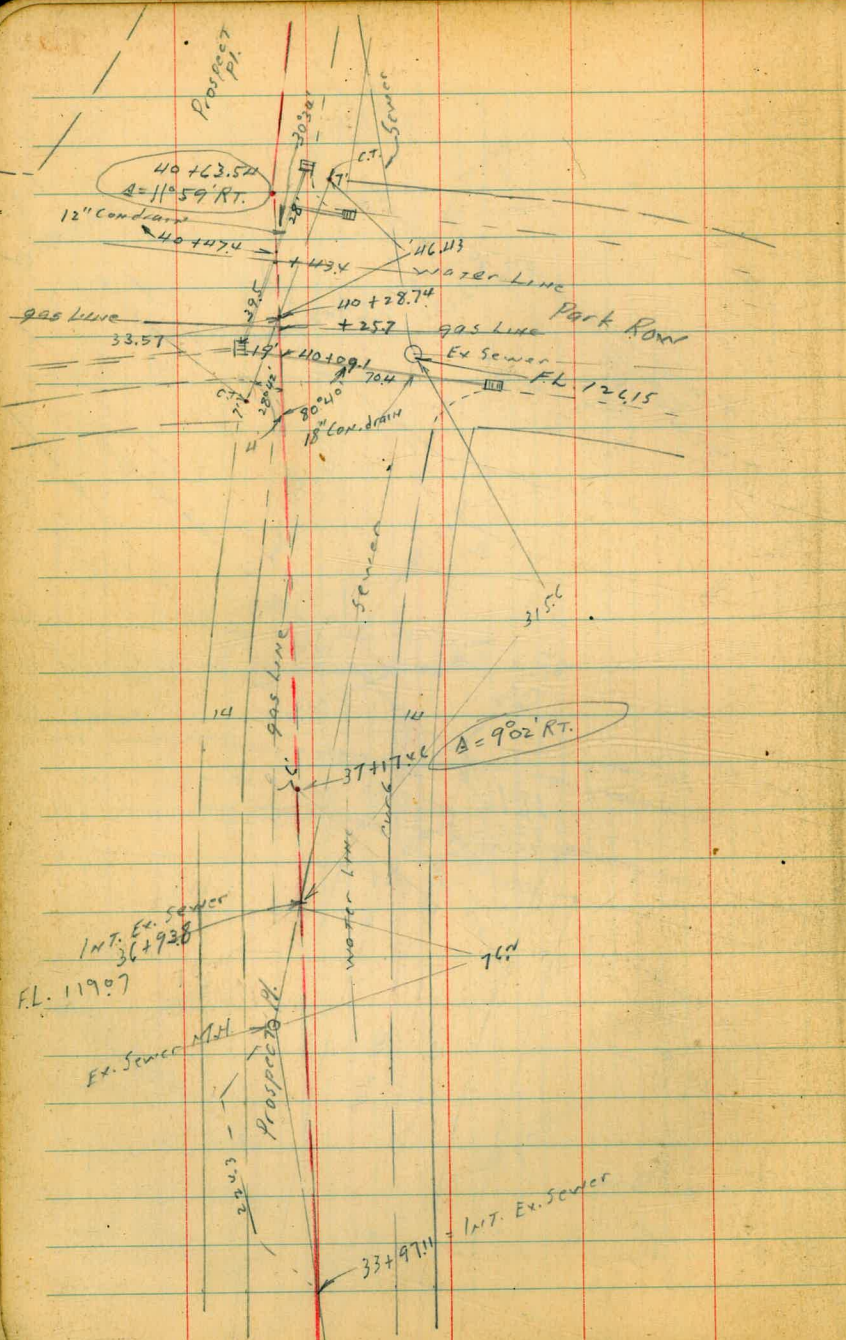 Prospect
Pl.
30°30'
Sewer
C.T.
40+63.54
Δ=11°59' RT.
7'
28'
12" Con. drain
40+47.4
46.43
+43.4
Water Line
39.5
40+28.74
gas Line
+25.7
gas Line
Park Row
33.57
19'
40+09.1
Ex Sewer
70.4
F.L. 126.15
C.T.
28°42'
80°40'
18" Con. drain
4
Sewer
315.6
gas Line
14
14
Δ=9°02' RT.
6'
37+17.46
curb
Water Line
Int. Ex. Sewer
36+93.8
F.L. 119.07
Ex. Sewer M.H.
Prospect Pl.
224.3
33+97.11 = Int. Ex. Sewer